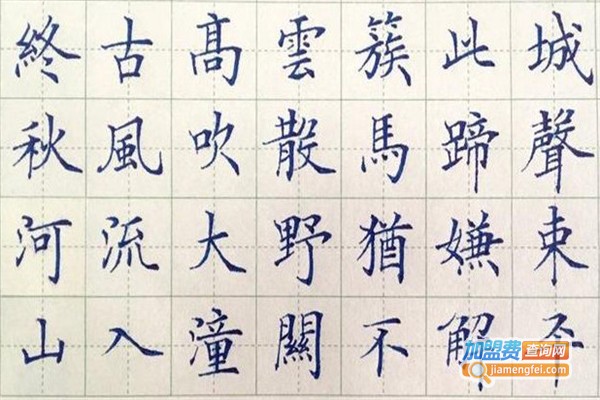 終古高雲簇此城
秋風吹散馬蹄聲
河流大野猶嫌束
山入潼關不解平
加盟费查询网
jiamengfei.com